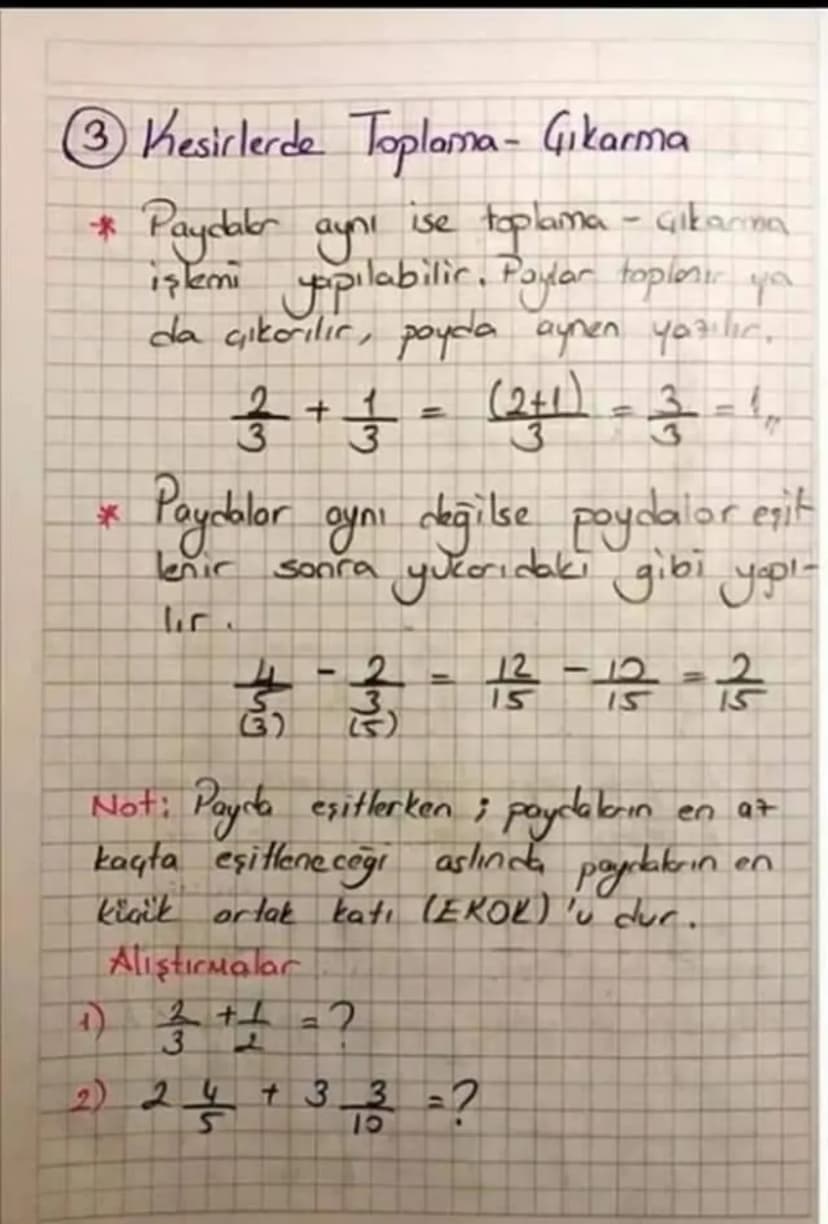 ③ Kesirlerde Toplama - Çıkarma
* Paydalar aynı ise toplama - çıkarma
işlemi yapılabilir. Paylar toplanır ya
da çıkarılır, payda aynen yazılır.
2/3 + 1/3 = (2+1)/3 = 3/3 = 1//
* Paydalar aynı değilse paydalar eşit
lenir sonra yukarıdaki gibi yapı-
lır.
4/5 - 2/3 = 12/15 - 10/15 = 2/15
(3) (5)
Not: Payda eşitlerken ; paydaların en az
kaçta eşitleneceği aslında paydaların en
küçük ortak katı (EKOK)'u dur.
Alıştırmalar
1) 2/3 + 1/2 = ?
2) 2 4/5 + 3 3/10 = ?